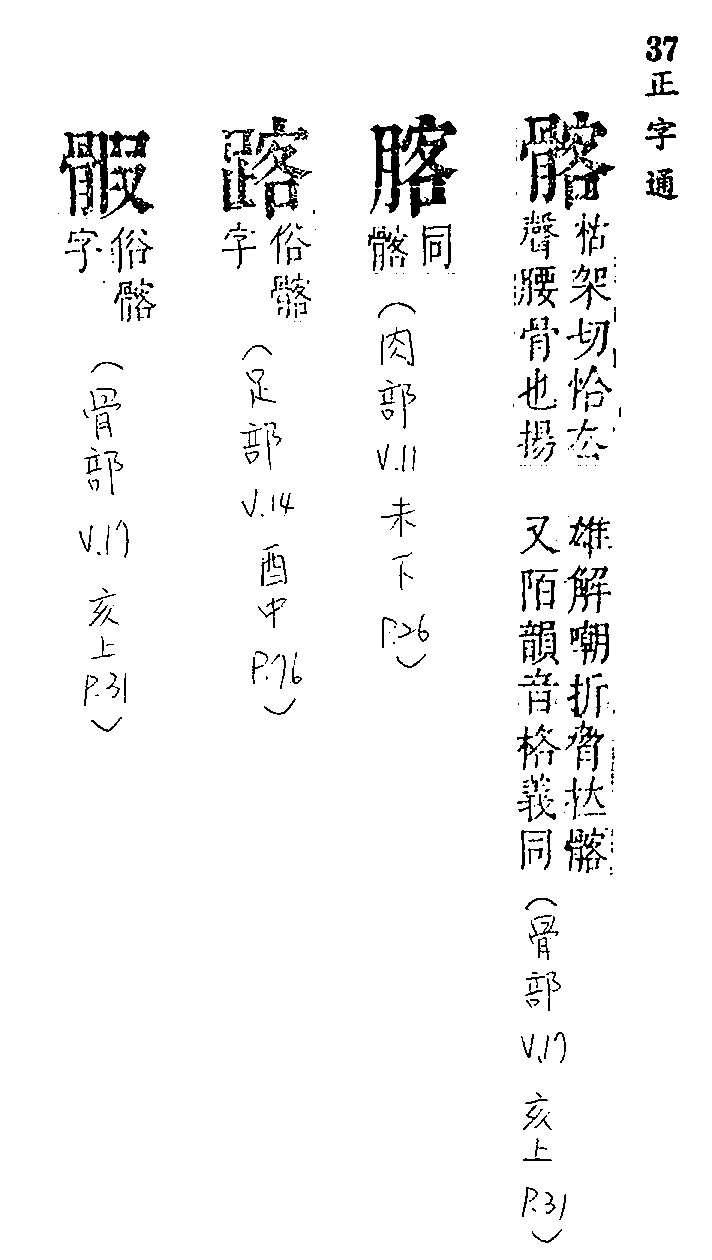 37正字通
髂
枯架切恰厺
聲腰骨也揚
雄解嘲折脅拉髂
又陌韻音格義同
(骨部 V.17 亥上 P.31)
同
髂
(肉部 V.11 未下 P.26)
俗髂
字
(足部 V.14 酉中 P.76)
俗髂
字
(骨部 V.17 亥上 P.31)